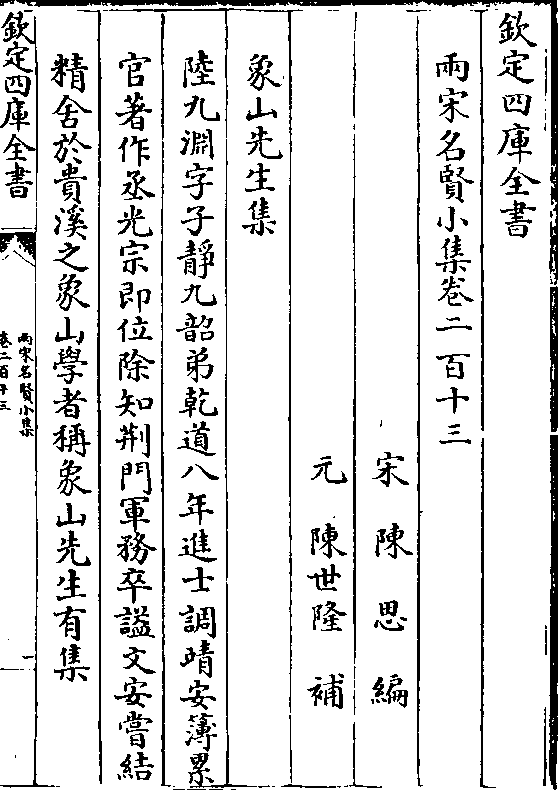 欽定四庫全書
兩宋名賢小集卷二百十三
宋 陳思 編
元 陳世隆 補
象山先生集
陸九淵字子靜九韶弟乾道八年進士調晴安簿累
官著作丞光宗即位除知荆門軍務卒諡文安嘗結
精舍於貴溪之象山學者稱象山先生有集
欽定四庫全書
兩宋名賢小集
卷二百十三
一